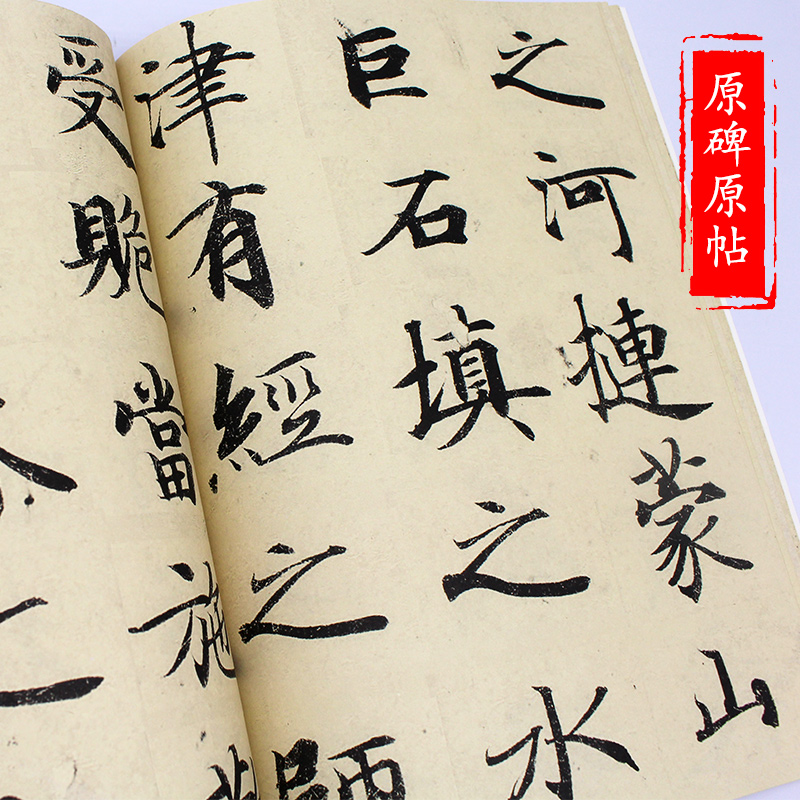 原碑原帖
之河槤蒙山
巨石填之水
津有經之
受當施